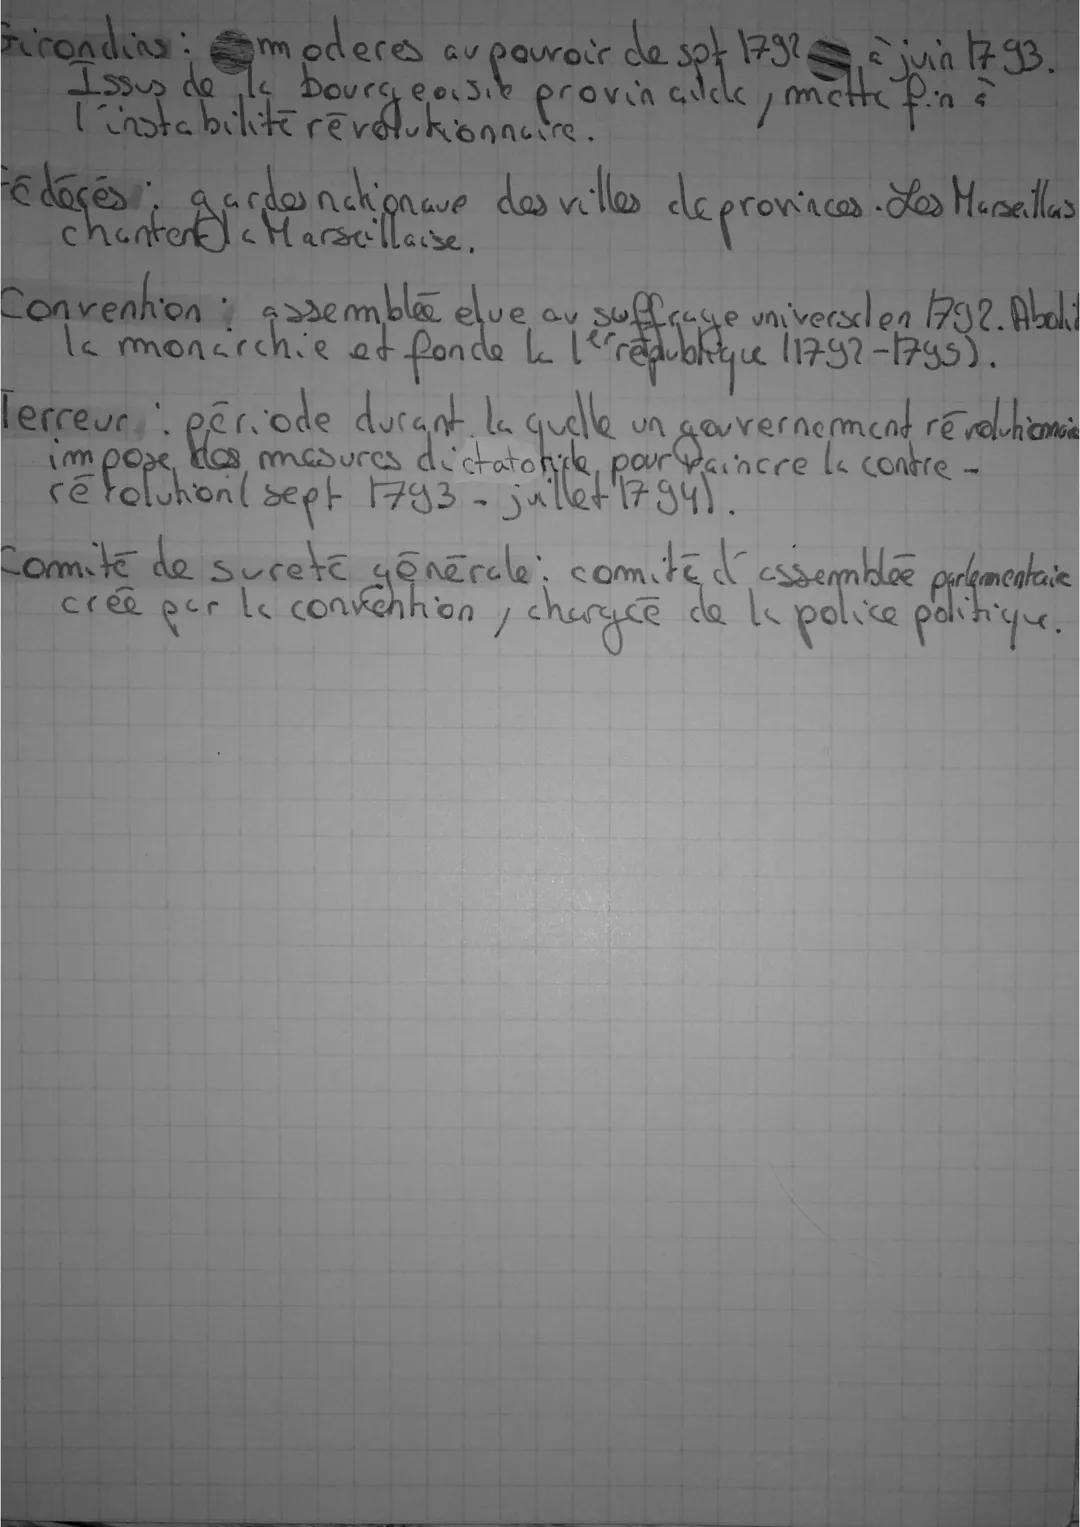 Girondins : moderes au pouvoir de spt 1792 à juin 1793.
Issus de la bourgeoisie provinciale, mette fin à
l'instabilité révolutionnaire.
Fédérés : gardes nationaux des villes de provinces. Les Marseillas
chantent la Marseillaise.
Convention : assemblée elue au suffrage universel en 1792. Abolit
la monarchie et fonde la 1er république (1792-1795).
Terreur : période durant la quelle un gouvernement révolutionnaire
impose des mesures dictatoriale pour vaincre la contre-
révolution (sept 1793 - juillet 1794).
Comité de sureté générale : comité d'assemblée parlementaire
créé par la convention, chargée de la police politique.